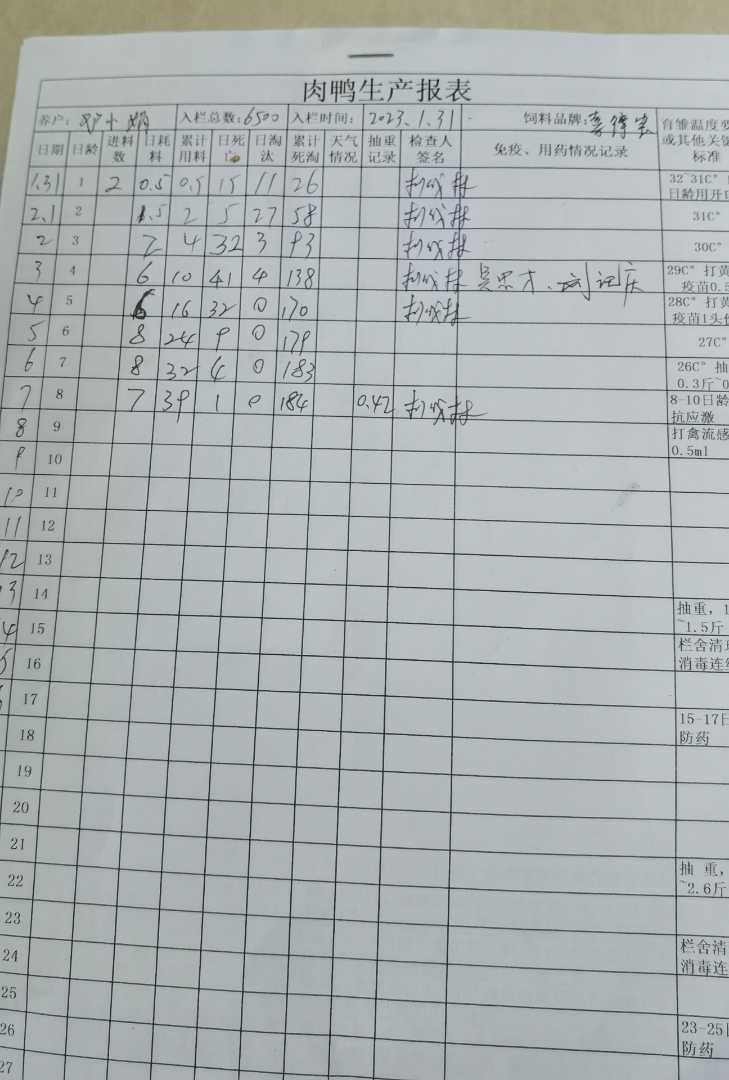 肉鸭生产报表
养户: 邓小娟 入栏总数: 6500 入栏时间: 2023.1.31 饲料品牌: 育雏温度要
或其他关键
标准
日期 日龄 进料数 日耗料 累计用料 日死亡 日淘汰 累计死淘 天气情况 抽重记录 检查人签名 免疫、用药情况记录
1.31 1 2 0.5 0.5 15 11 26 32~31C°
日龄用开口
2.1 2 1.5 2 5 27 58 31C°
2 3 2 4 32 3 93 30C°
3 4 6 10 41 4 138 29C° 打黄
疫苗0.5
4 5 6 16 32 0 170 28C° 打黄
疫苗1头份
5 6 8 24 9 0 179 27C°
6 7 8 32 4 0 183 26C° 抽
0.3斤~0
7 8 7 39 1 0 184 0.42 8-10日龄
抗应激
8 9 打禽流感
0.5ml
9 10
10 11
11 12
12 13
3 14
4 15 抽重,1
~1.5斤
5 16 栏舍清
消毒连续
17
18 15-17日
防药
19
20
21
22 抽 重,
~2.6斤
23
24 栏舍清
消毒连
25
26 23-25日
防药
27